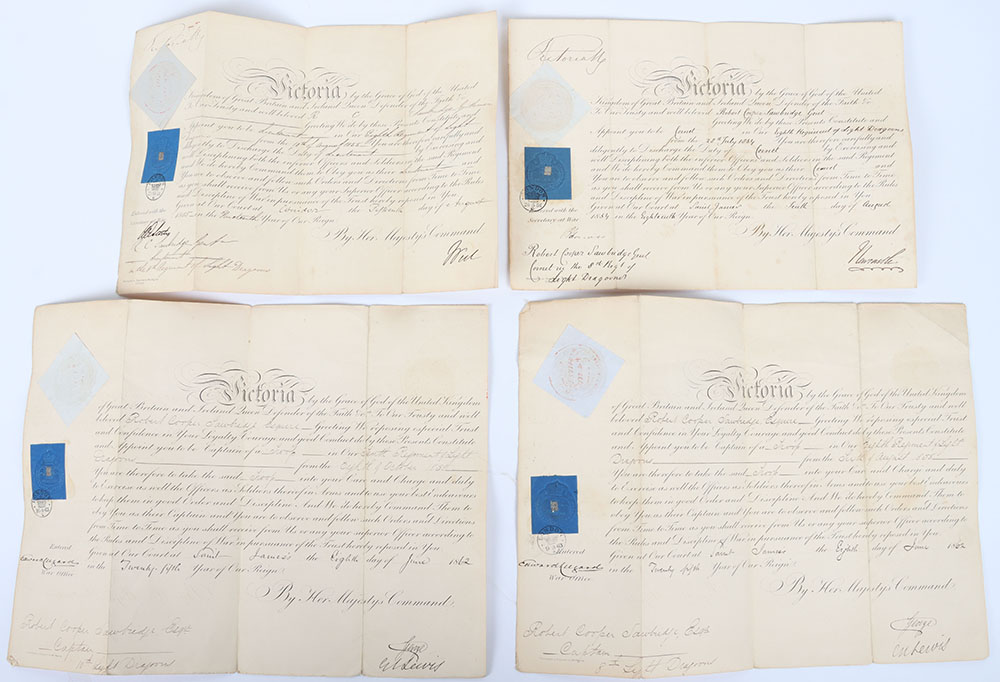 Victoria R
Victoria by the Grace of God of the United
Kingdom of Great Britain and Ireland Queen Defender of the Faith
To Our Trusty and well beloved
Greeting We do by these Presents Constitute and
Appoint you to be Lieutenant in Our Eighth Regiment of Light
Dragoons from the You are therefore carefully and
diligently to Discharge the Duty of Lieutenant by Exercising
and Disciplining both the inferior Officers and Soldiers in the said Regiment
and We do hereby Command them to Obey you as their Lieutenant and
you to observe and follow such Orders and Directions from Time to Time
as you shall receive from Us or any your Superior Officer according to the Rules
and Discipline of War in pursuance of the Trust hereby reposed in you
Given at Our Court at the Fifteenth day of August
185 in the Nineteenth Year of Our Reign
By Her Majesty's Command
Light Dragoons
Victoria R
Victoria by the Grace of God of the United
Kingdom of Great Britain and Ireland Queen Defender of the Faith &c
To Our Trusty and well beloved Robert Cooper Sawbridge Gent
Greeting We do by these Presents Constitute and
Appoint you to be Cornet in Our Eighth Regiment of Light Dragoons
from the 28th July 1854 You are therefore carefully and
diligently to Discharge the Duty of Cornet by Exercising and
and Disciplining both the inferior Officers and Soldiers in the said Regiment
and We do hereby Command them to Obey you as their Cornet
and you to observe and follow such Orders and Directions from Time to Time
as you shall receive from Us or any your Superior Officer according to the Rules
and Discipline of War in pursuance of the Trust hereby reposed in you
Given at Our Court at Saint James's the Tenth day of August
1854 in the Eighteenth Year of Our Reign
Entered with the
Secretary at War
By Her Majesty's Command
Newcastle
Robert Cooper Sawbridge Gent
Cornet in the 8th Regt of
Light Dragoons
Victoria by the Grace of God of the United Kingdom
of Great Britain and Ireland Queen Defender of the Faith &c To Our Trusty and well
beloved Robert Cooper Sawbridge Esquire Greeting We reposing especial Trust
and Confidence in Your Loyalty Courage and good Conduct do by these Presents Constitute
and Appoint you to be Captain of a Troop in Our Regiment of Light
Dragoons from the Eighth October
You are therefore to take the said Troop into your Care and Charge and duly
to Exercise as well the Officers as Soldiers thereof in Arms and to use your best Endeavours
to keep them in good Order and Discipline And We do hereby Command Them to
obey You as their Captain and You are to observe and follow such Orders and Directions
from Time to Time as you shall receive from Us or any your superior Officer according to
the Rules and Discipline of War in pursuance of the Trust hereby reposed in You
Given at Our Court at Saint James's the Eighth day of June 1862
in the Twenty fifth Year of Our Reign
Entered
War Office
By Her Majesty's Command
Robert Cooper Sawbridge Esqre
Captain
Light Dragoons
George
G C Lewis
Victoria by the Grace of God of the United Kingdom
of Great Britain and Ireland Queen Defender of the Faith &c To Our Trusty and well
beloved Robert Cooper Sawbridge Esquire Greeting We reposing especial Trust
and Confidence in Your Loyalty Courage and good Conduct do by these Presents Constitute
and Appoint you to be Captain of a Troop in Our Eighth Regiment of Light
Dragoons from the
You are therefore to take the said Troop into your Care and Charge and duly
to Exercise as well the Officers as Soldiers thereof in Arms and to use your best Endeavours
to keep them in good Order and Discipline And We do hereby Command Them to
obey You as their Captain and You are to observe and follow such Orders and Directions
from Time to Time as you shall receive from Us or any your superior Officer according to
the Rules and Discipline of War in pursuance of the Trust hereby reposed in You
Given at Our Court at Saint James's the Eighth day of June 1862
in the Twenty fifth Year of Our Reign
Entered
War Office
By Her Majesty's Command
Robert Cooper Sawbridge Esqre
Captain
8th Light Dragoons
George
G C Lewis